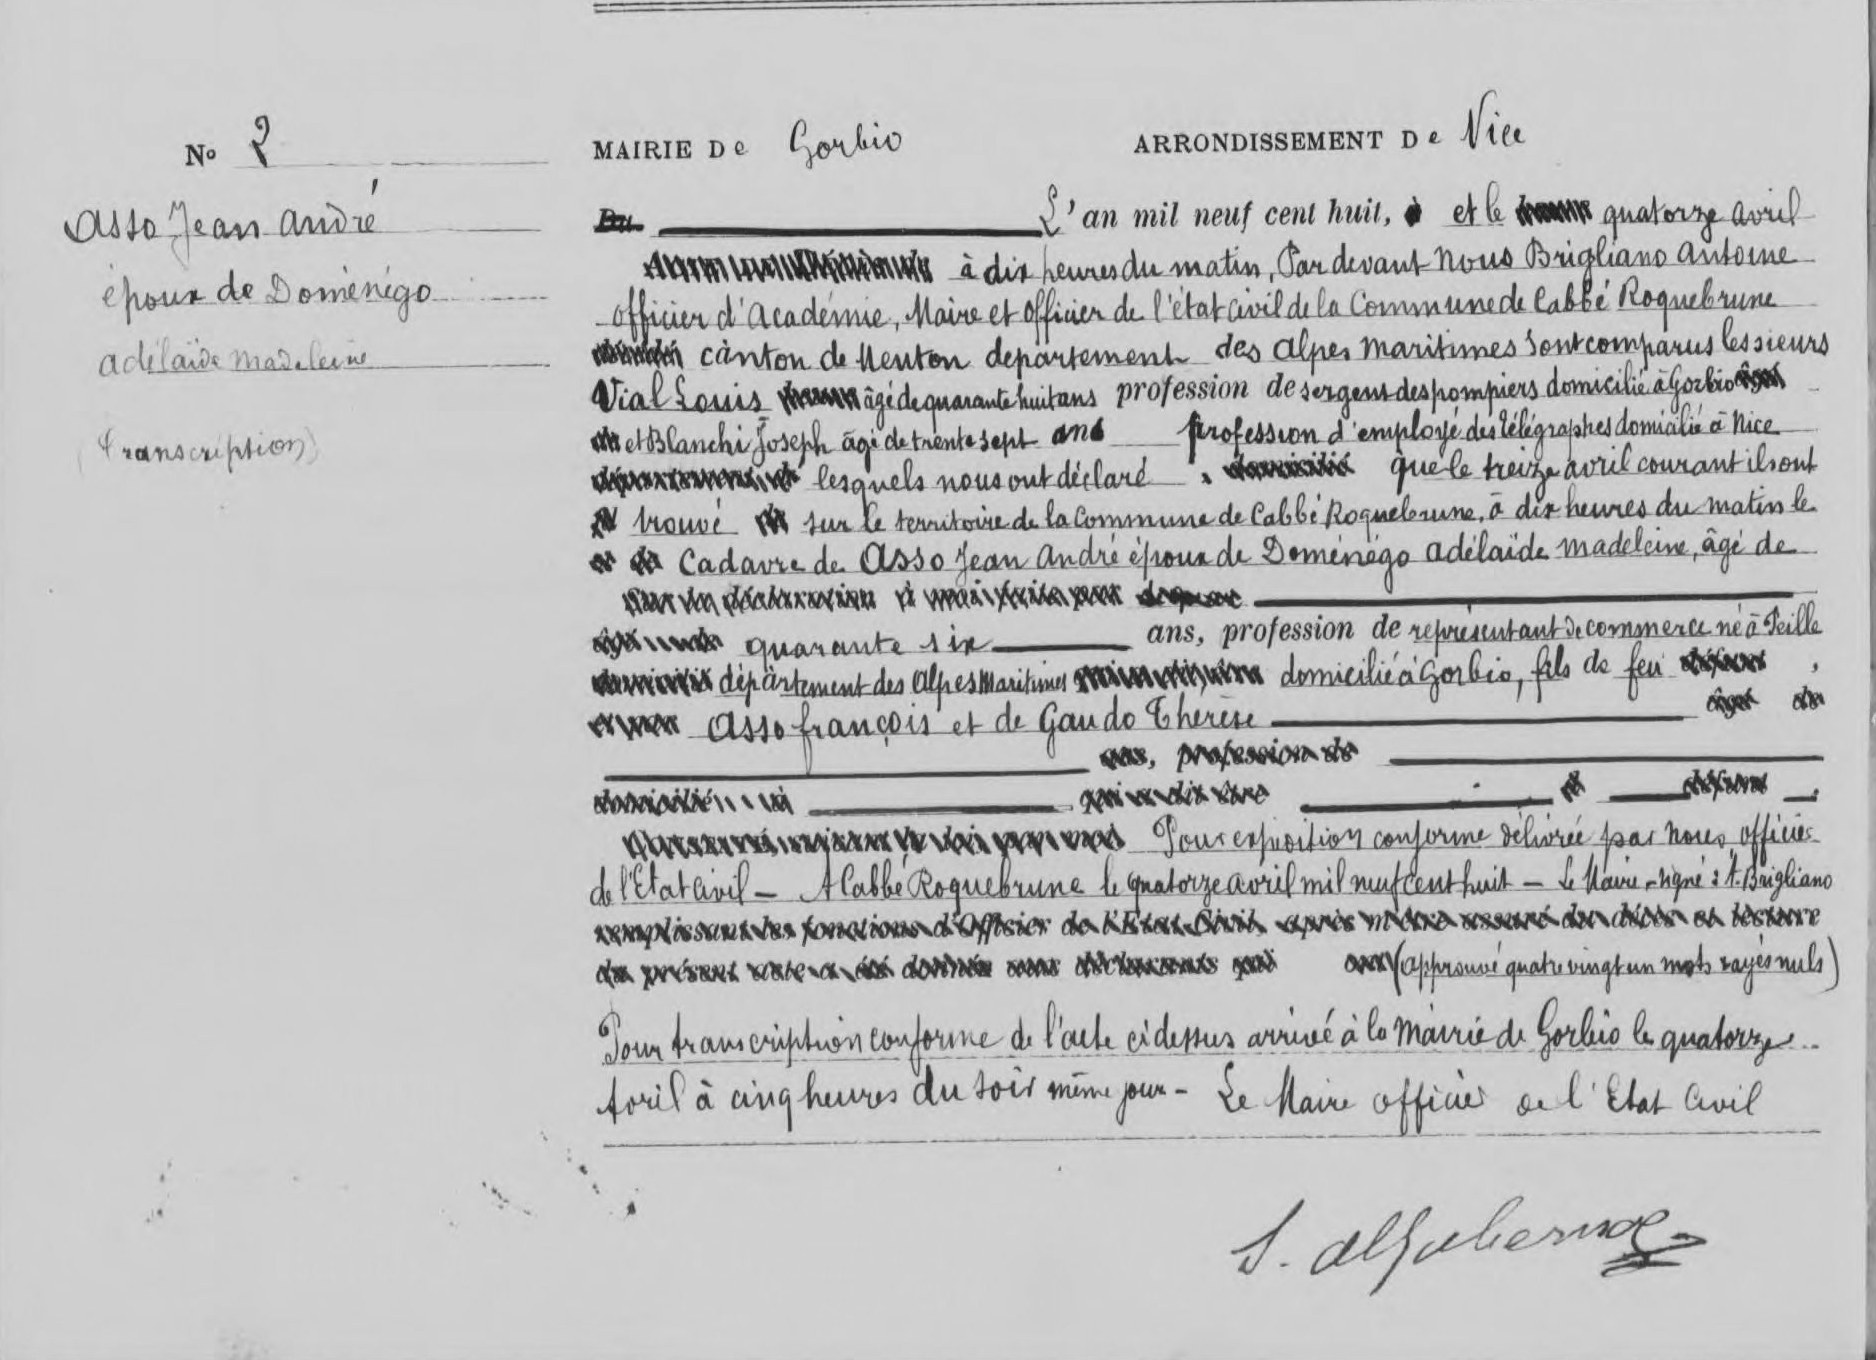 No 2
MAIRIE De Gorbio ARRONDISSEMENT De Nice
Asso Jean André
époux de Doménégo
Adélaïde Madeleine
(Transcription)
Du L'an mil neuf cent huit, et le quatorze avril
à dix heures du matin, Par devant Nous Brigliano Antoine
officier d'Académie, Maire et officier de l'état civil de la Commune de Cabbé Roquebrune
canton de Menton département des Alpes Maritimes sont comparus les sieurs
Vial Louis âgé de quarante huit ans profession de sergent des pompiers domicilié à Gorbio
et Blanchi Joseph âgé de trente sept ans profession d'employé des télégraphes domicilié à Nice
lesquels nous ont déclaré que le treize avril courant ils ont
trouvé sur le territoire de la Commune de Cabbé Roquebrune, à dix heures du matin le
Cadavre de Asso Jean André époux de Doménégo Adélaïde Madeleine, âgé de
quarante six ans, profession de représentant de commerce né à Peille
département des Alpes Maritimes domicilié à Gorbio, fils de feu
Asso françois et de Gaudo Thérèse
ans, profession de
domicilié
Pour expédition conforme délivrée par nous, officier
de l'Etat Civil — A Cabbé Roquebrune le quatorze avril mil neuf cent huit — Le Maire - signé : A. Brigliano
remplissant les fonctions d'Officier de l'Etat Civil, après
du présent (approuvé quatre vingt un mots rayés nuls)
Pour transcription conforme de l'acte ci dessus arrivé à la Mairie de Gorbio le quatorze
Avril à cinq heures du soir même jour - Le Maire officier de l'Etat Civil